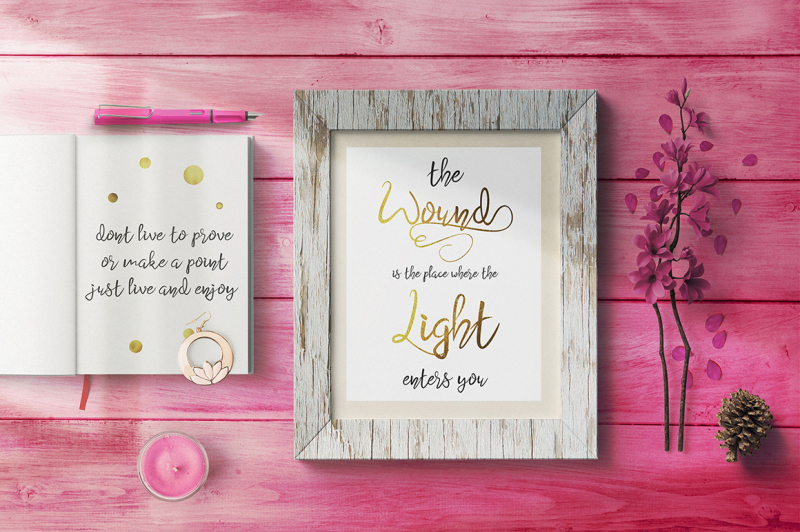 dont live to prove
or make a point
just live and enjoy
the
Wound
is the place where the
Light
enters you